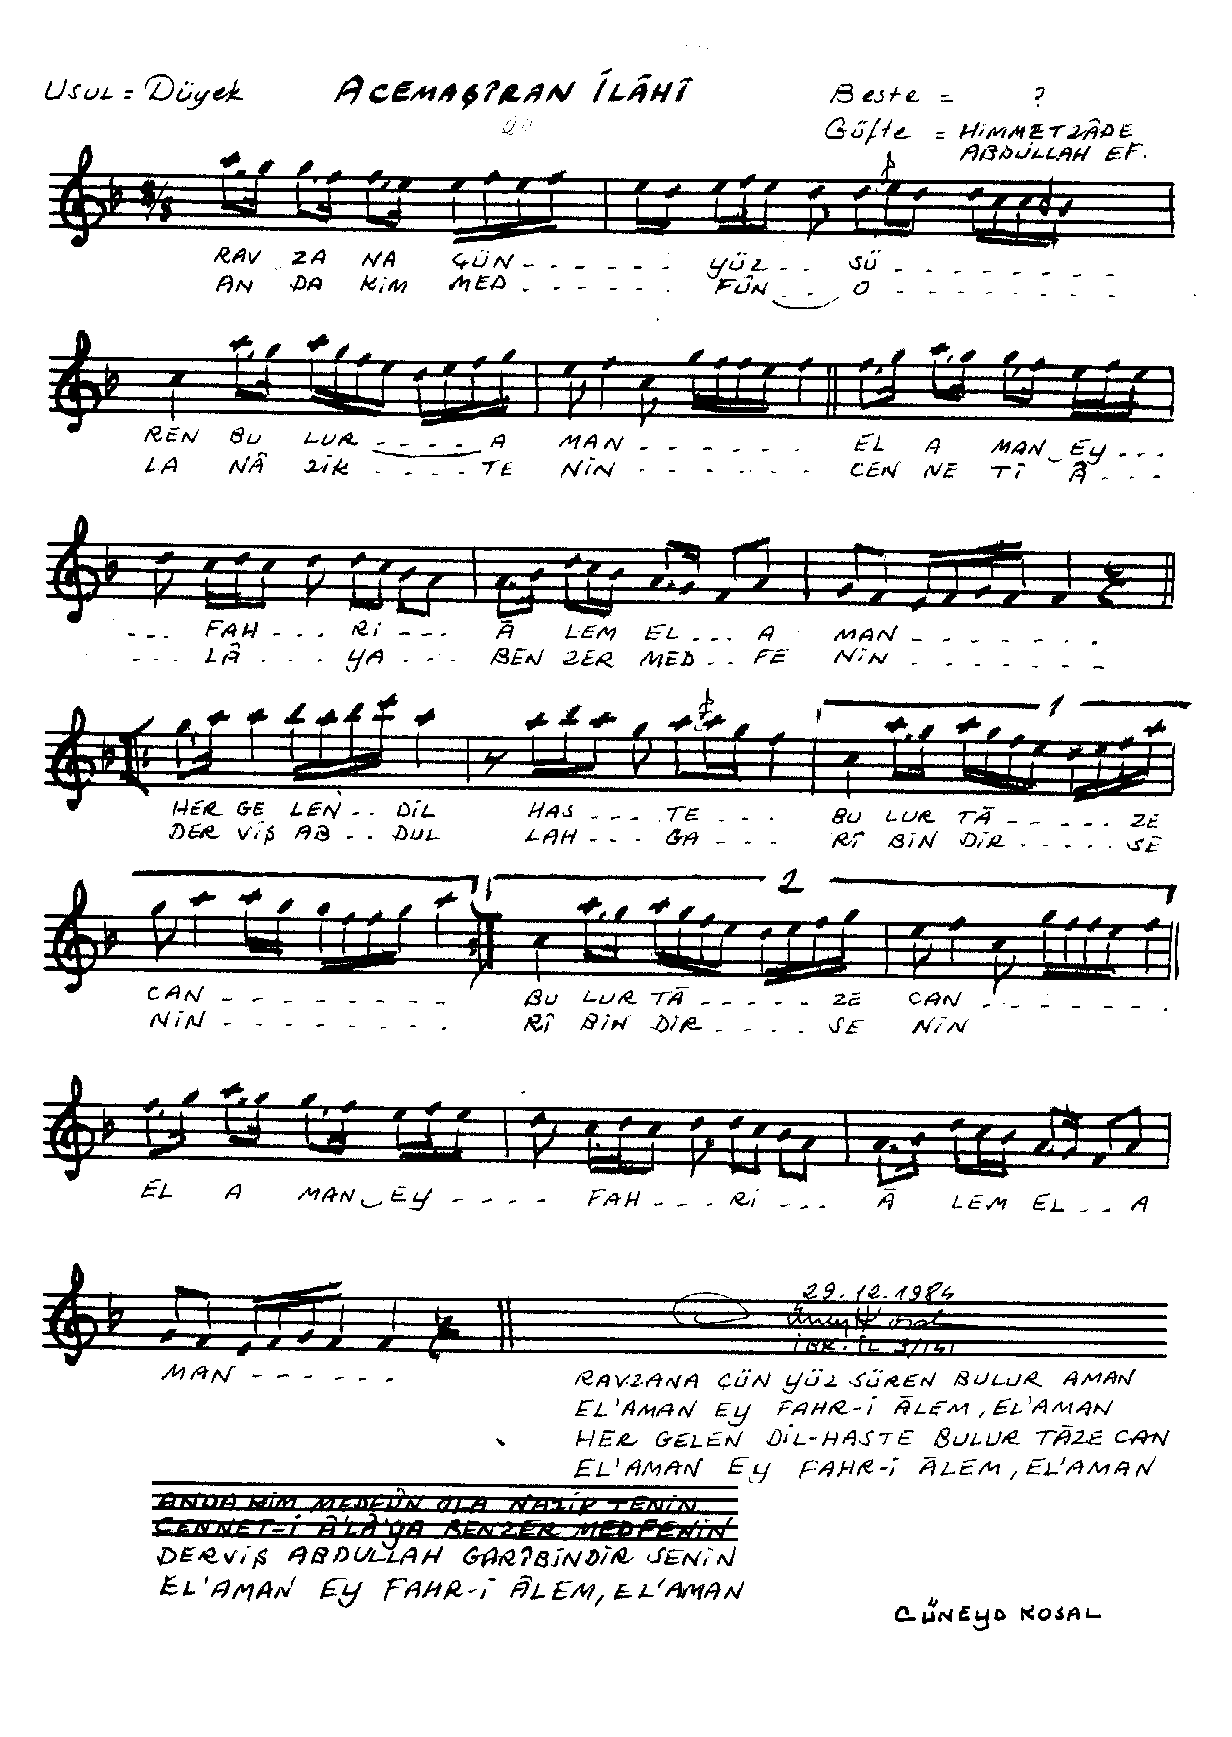 USUL = Düyek
ACEMAŞÎRAN ÎLÂHÎ
Beste = ?
Güfte = HİMMETZÂDE
ABDULLAH EF.
8/8
RAV ZA NA ÇÜN - - - - - - YÜZ - - SÜ - - - - - - - -
AN DA KİM MED - - - - - - FÛN - - O - - - - - - - -
REN BU LUR - - - - A MAN - - - - - - EL A MAN EY - - -
LA NÂ ZİK - - - - TE NİN - - - - - - CEN NE TÎ Â - - -
- - - FAH - - - Rİ - - - Â LEM EL - - - A MAN - - - - - - -
- - - LÂ - - - YA - - - BEN ZER MED - - FE NİN - - - - - - -
1
HER GE LEN - - DİL HAS - - - TE - - - BU LUR TÂ - - - - - ZE
DER VİŞ AB - - DUL LAH - - - GA - - - RÎ BİN DİR - - - - - SE
2
CAN - - - - - - - - BU LUR TÂ - - - - - ZE CAN - - - - - - -
NİN - - - - - - - - RÎ BİN DİR - - - - - SE NİN
EL A MAN EY - - - - FAH - - - Rİ - - - Â LEM EL - - A
29.12.1984
MAN - - - - - -
RAVZANA ÇÜN YÜZ SÜREN BULUR AMAN
EL'AMAN EY FAHR-İ ÂLEM, EL'AMAN
HER GELEN DİL-HASTE BULUR TÂZE CAN
EL'AMAN EY FAHR-İ ÂLEM, EL'AMAN
ANDA KİM MEDFÛN OLA NAZİK TENİN
CENNET-İ Â'LÂ'YA BENZER MEDFENİN
DERVİŞ ABDULLAH GARÎBİNDİR SENİN
EL'AMAN EY FAHR-İ ÂLEM, EL'AMAN
CÜNEYD KOSAL